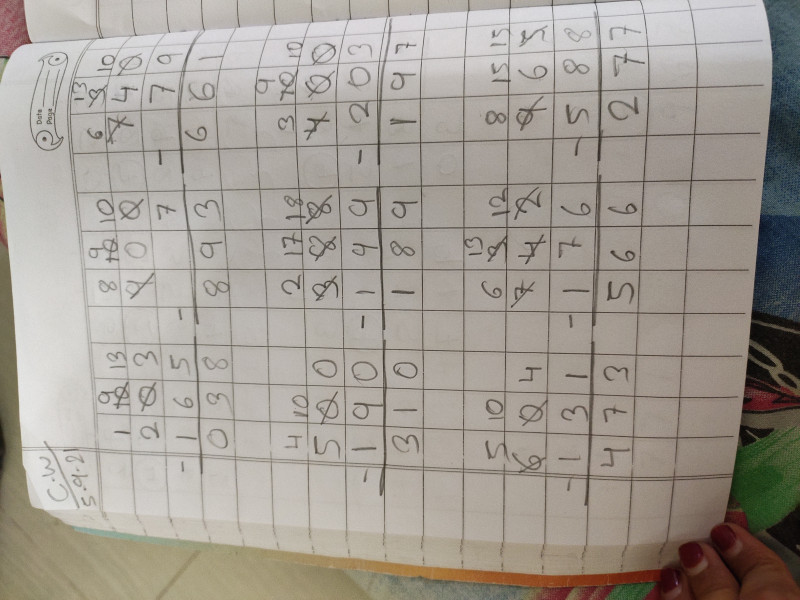 C.W
5.9.21
Date
Page
9 9 13
1 10 13 8 10 10 6 3 10
2 0 3 9 0 0 7 4 0
- 1 6 5 - 7 - 7 9
0 3 8 8 9 3 6 6 1
9
4 10 2 17 18 3 10 10
5 0 0 3 8 8 4 0 0
- 1 9 0 - 1 9 9 - 2 0 3
3 1 0 1 8 9 1 9 7
13
5 10 6 3 12 8 15 15
6 0 4 7 4 2 9 6 5
- 1 3 1 - 1 7 6 - 5 8 8
4 7 3 5 6 6 2 7 7